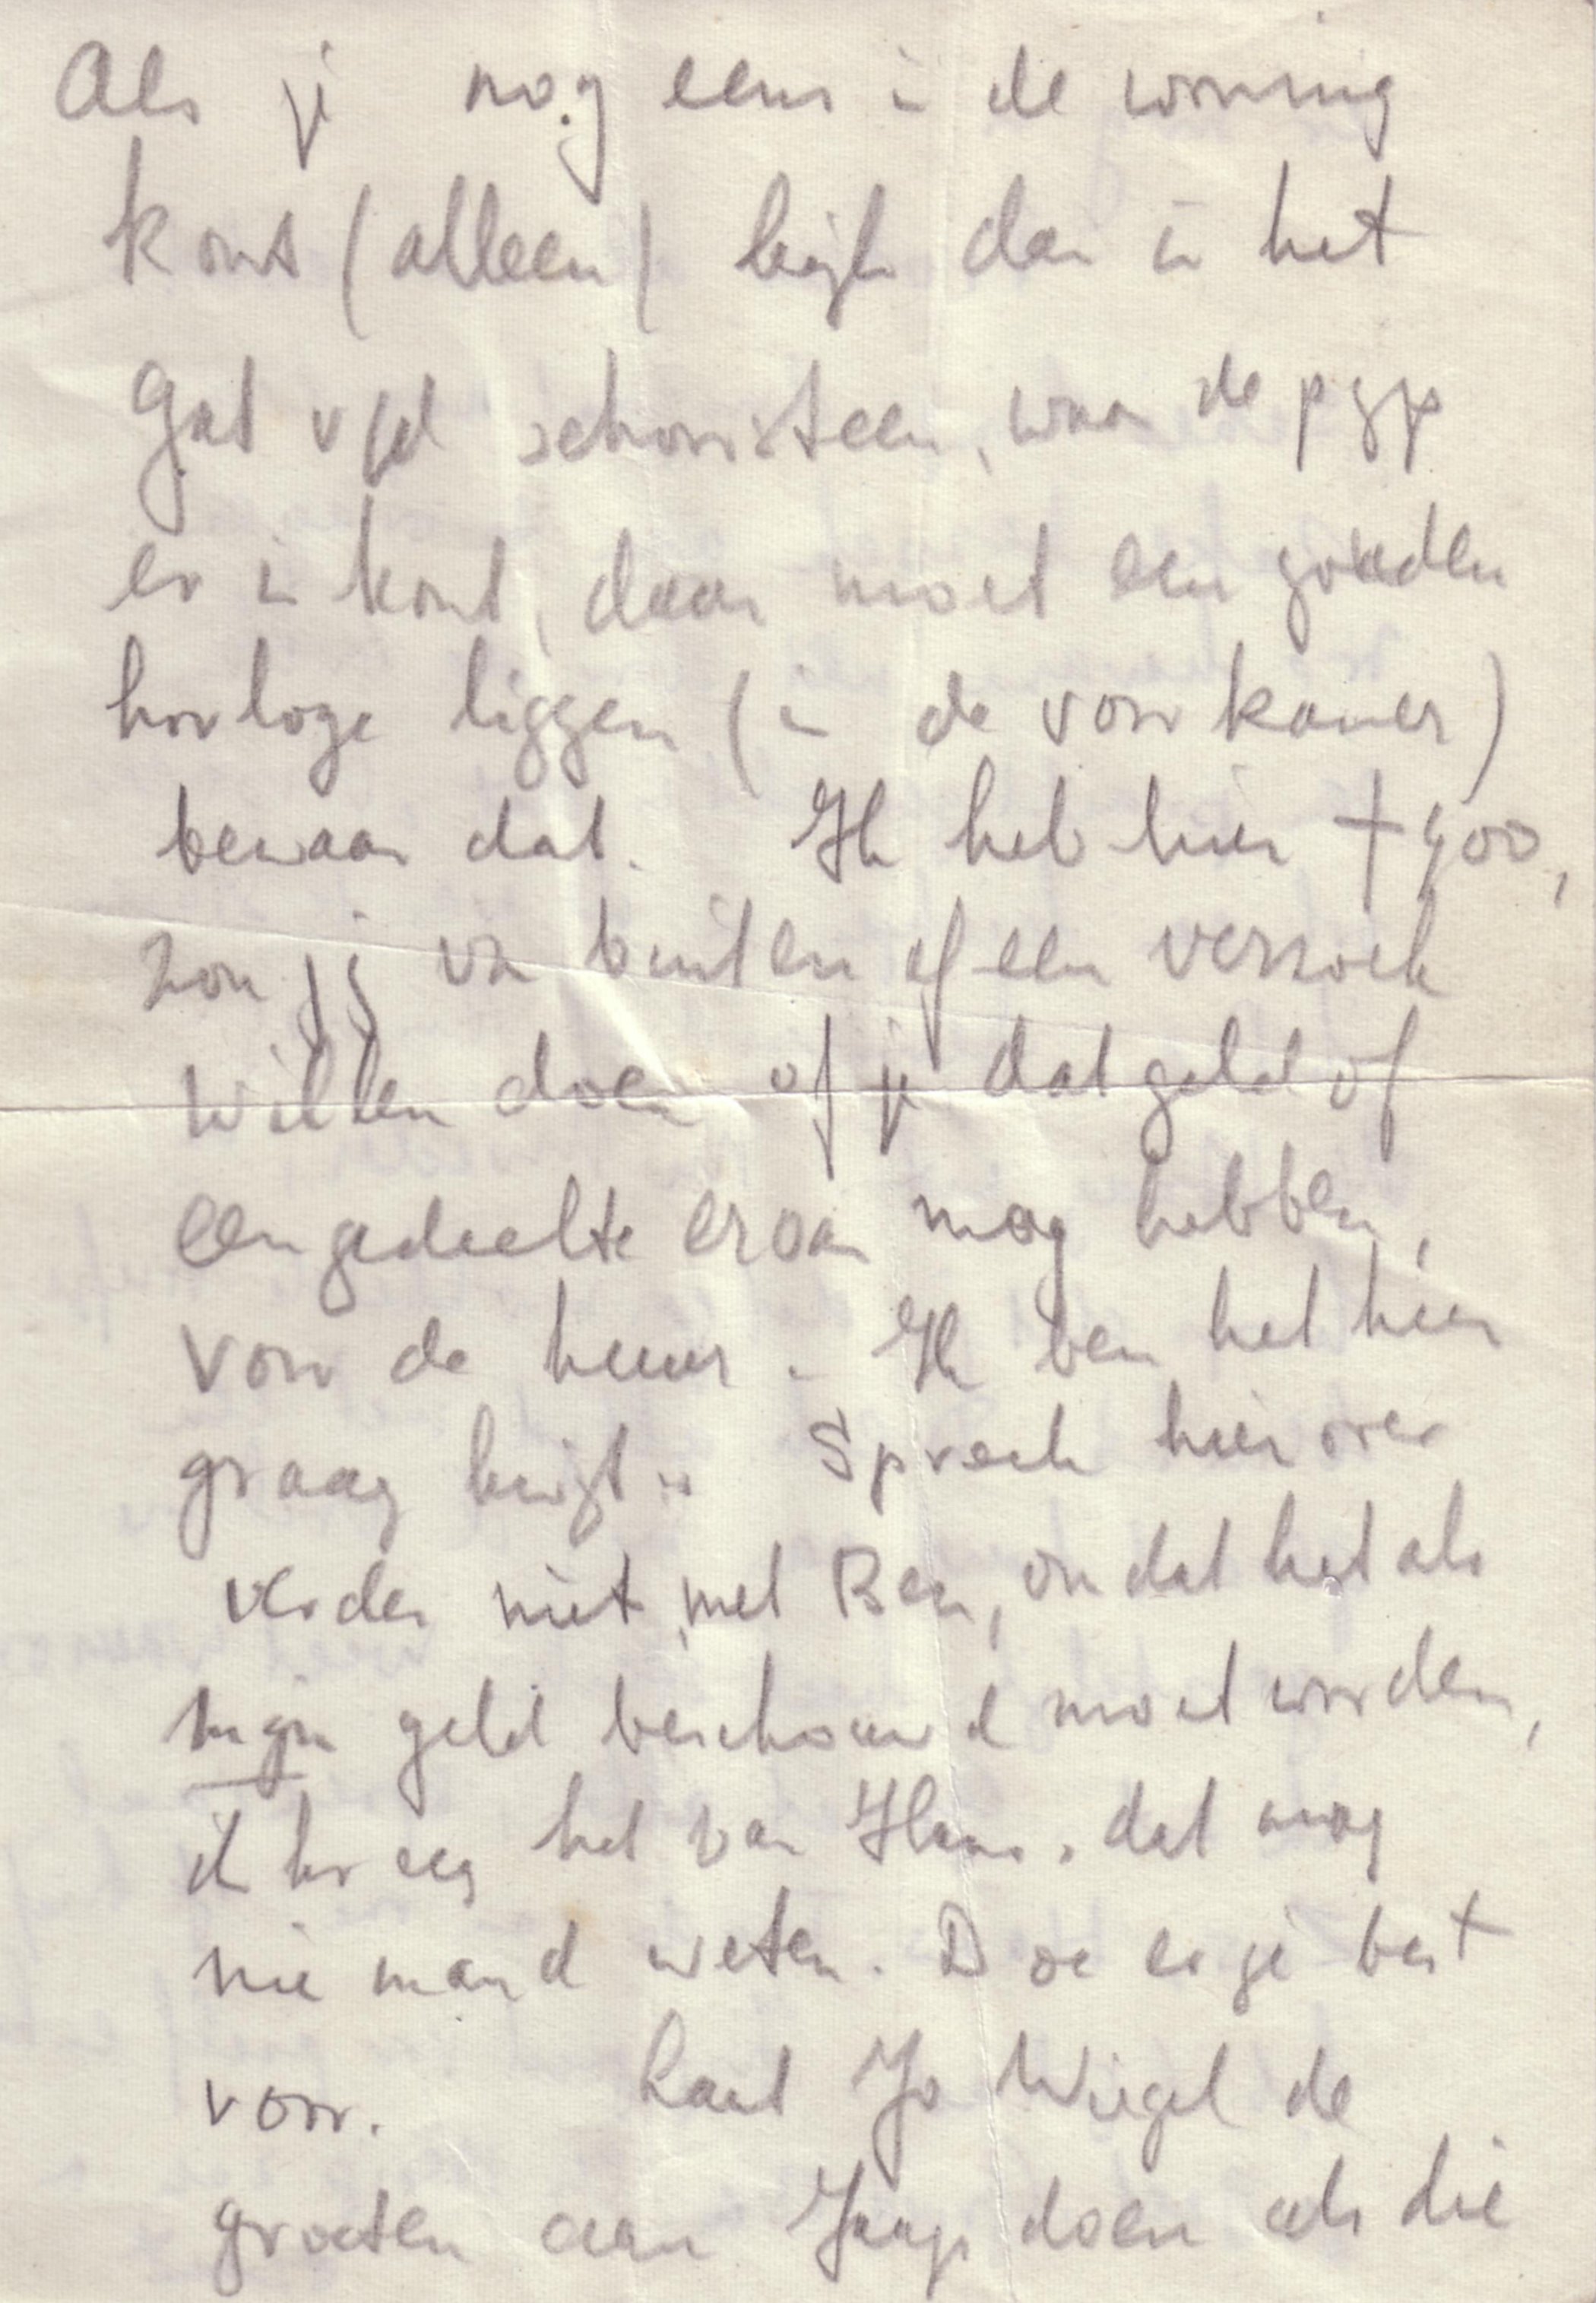 Als je nog eens in de woning
komt (alleen) kijk dan in het
gat v/d schoorsteen, waar de pijp
er in komt, daar moet een gouden
horloge liggen (in de voorkamer)
bewaar dat. Ik heb hier + 400,
zou jij van buiten af een verzoek
willen doen of je dat geld of
een gedeelte ervan mag hebben,
voor de huur. Ik ben het hier
graag kwijt. Spreek hierover
verder niet met Ben, omdat het als
mijn geld beschouwd moet worden,
ik kreeg het van Hans. dat mag
niemand weten. Doe er je best
voor. Laat Jo Wiegel de
groeten aan Jaap doen als die